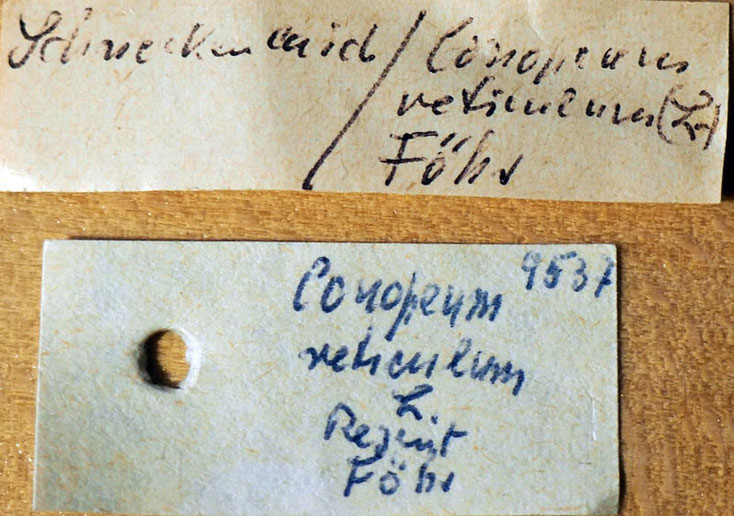 Schnecken mid / Conopeum
reticulum (L.)
Föhr
9537
Conopeum
reticulum
L.
Rezent
Föhr